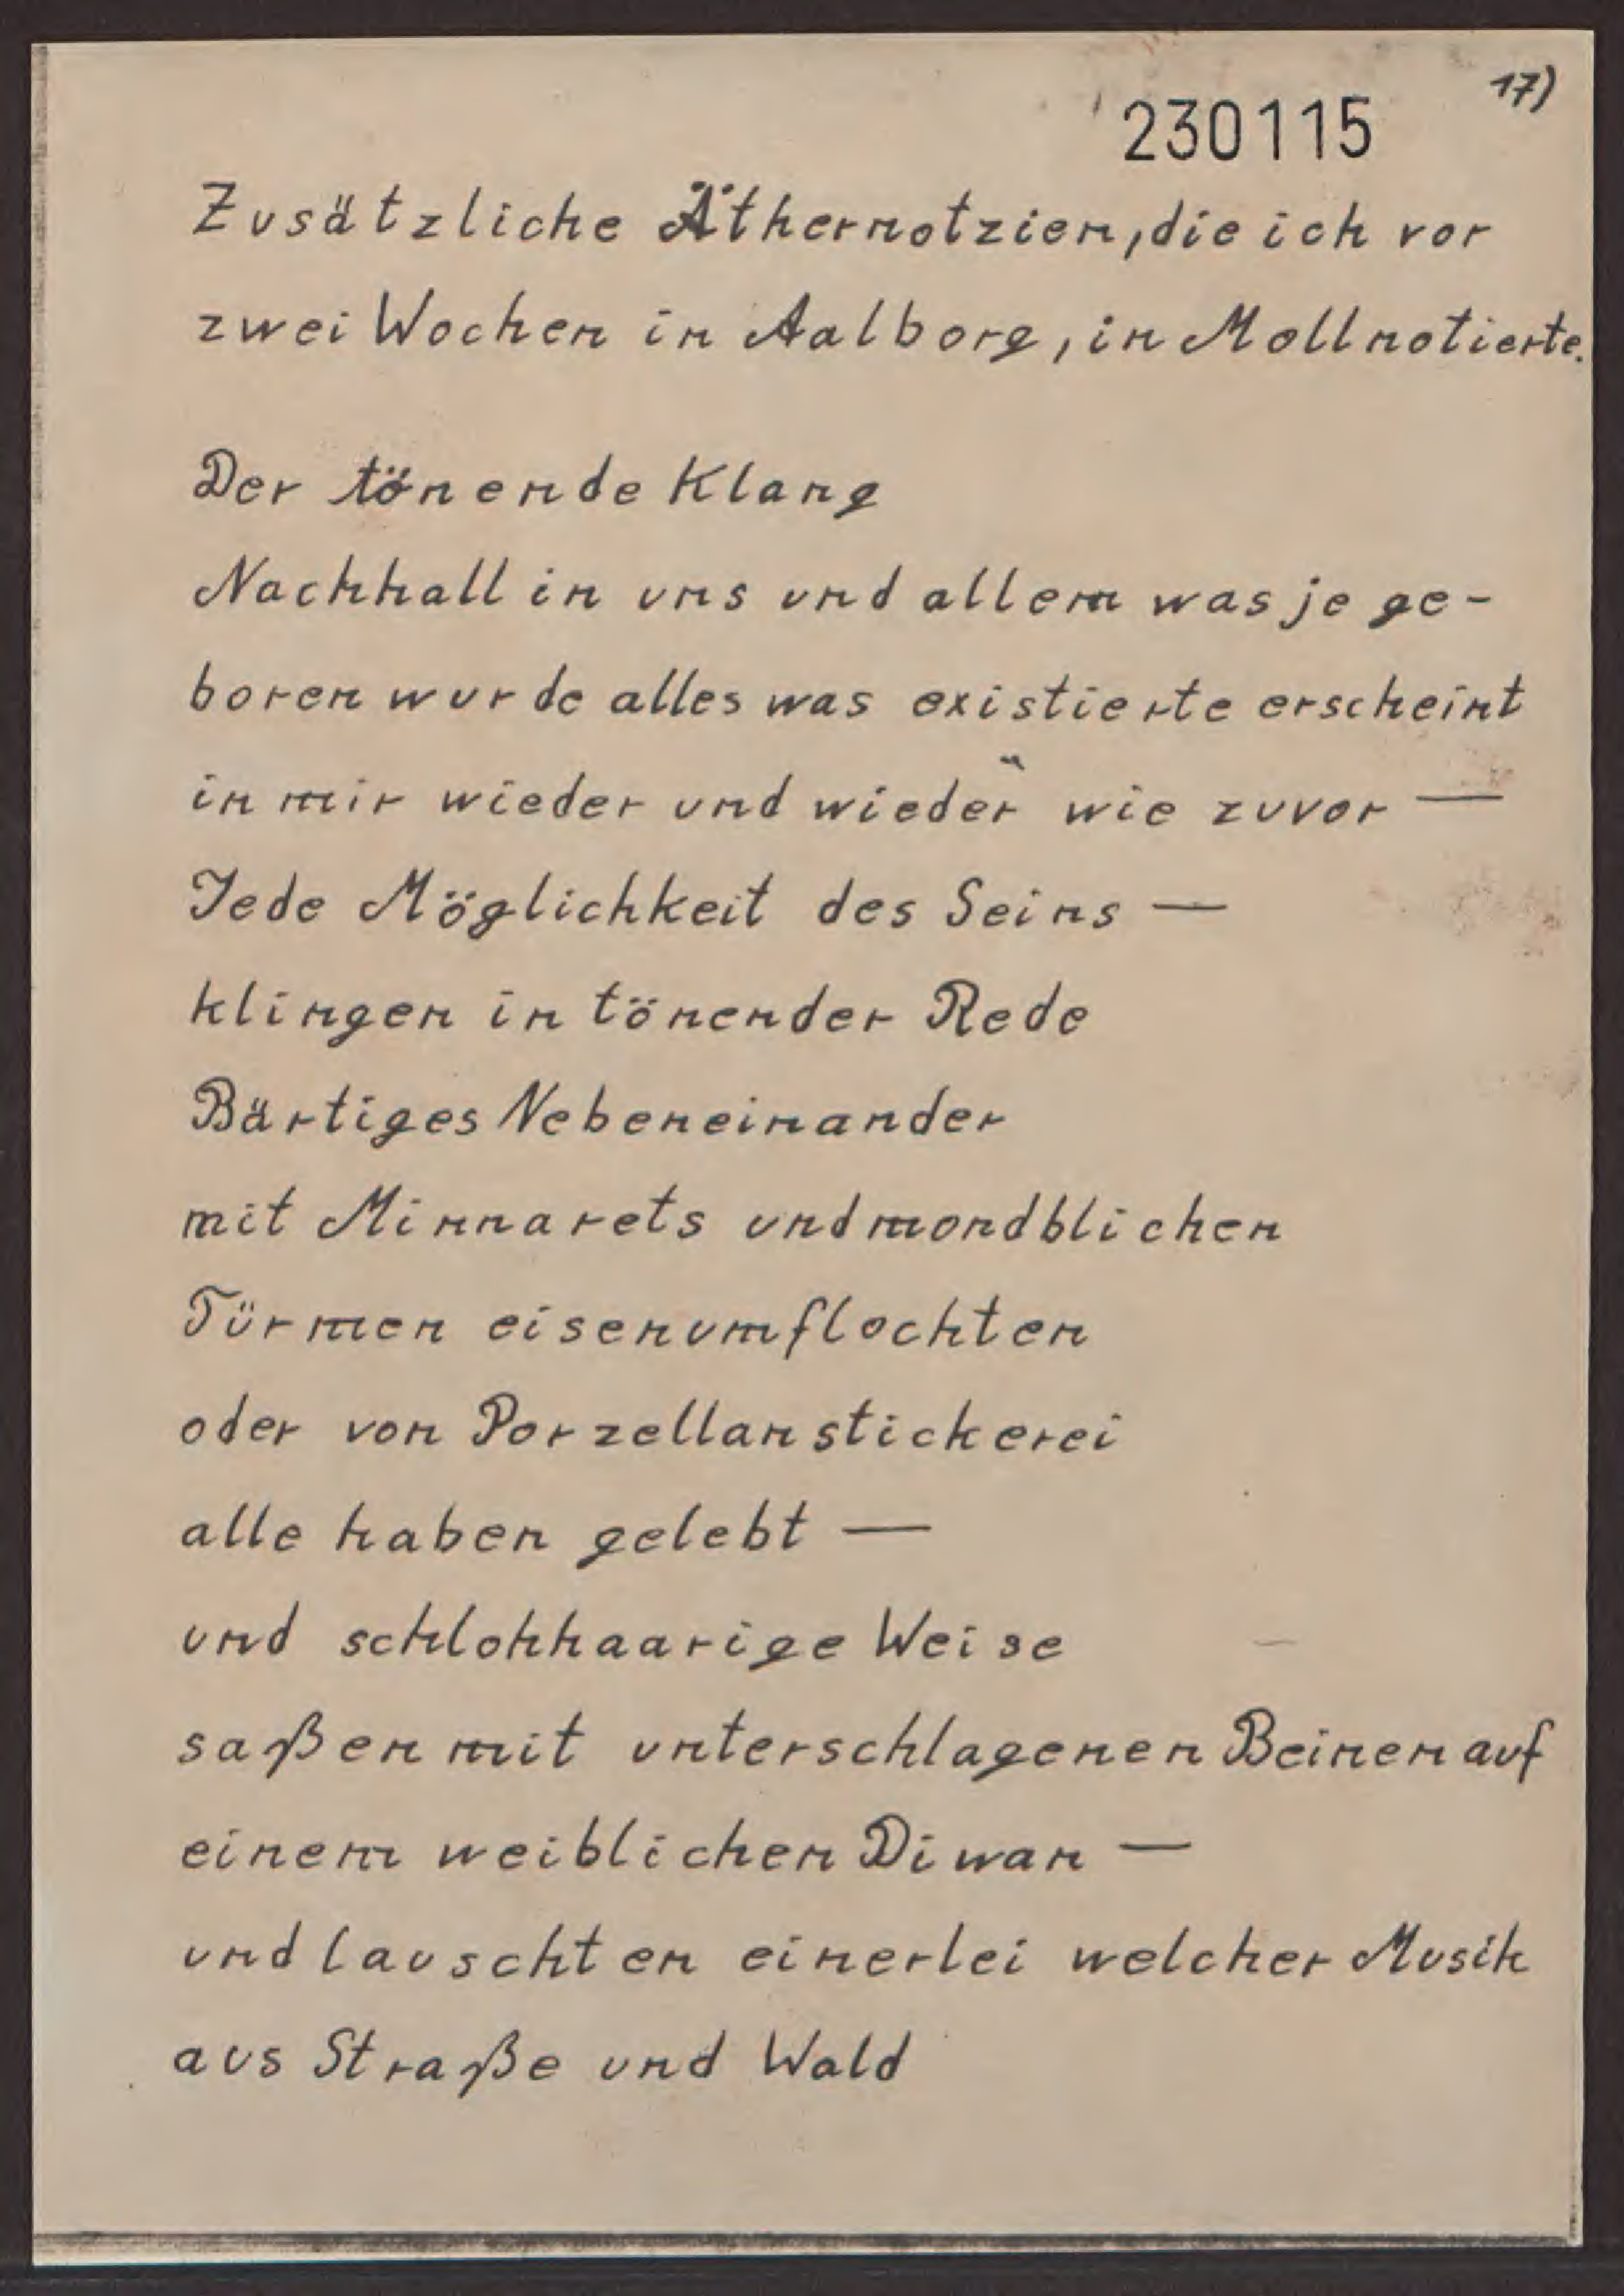 17)
230115
Zusätzliche Äthernotzien, die ich vor
zwei Wochen in Aalborg, in Moll notierte.
Der tönende Klang
Nachhall in uns und allem was je ge-
boren wurde alles was existierte erscheint
in mir wieder und wieder wie zuvor —
Jede Möglichkeit des Seins —
klingen in tönender Rede
Bärtiges Nebeneinander
mit Minnarets und mondblichen
Türmen eisenumflochten
oder von Porzellanstickerei
alle haben gelebt —
und schlohhaarige Weise
saßen mit unterschlagenen Beinen auf
einem weiblichen Diwan —
und lauschten einerlei welcher Musik
aus Straße und Wald